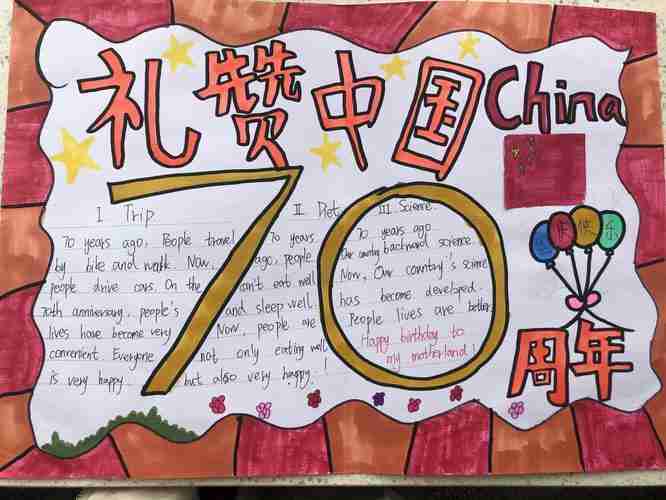 礼赞中国 China
70
周年
快乐
I Trip
70 years ago, People travel
by bike and walk. Now,
people drive cars. On the
70th anniversary, people's
lives have become very
convenient. Everyone
is very happy.
II Diet
70 years
ago, people
can't eat well
and sleep well.
Now, people are
not only eating well
but also very happy!
III Science
70 years ago
Our country backward science.
Now, Our country's science
has become developed.
People lives are better.
Happy birthday to
my motherland!